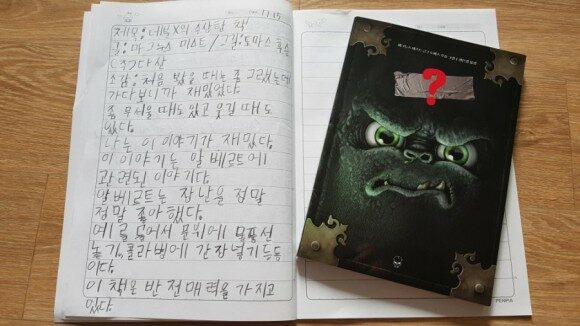 제목: 수상한 책!
글:마그누스 미스트/그림:토마스 후순
(주)다산
소감:처음 봤을 때는 좀 그랬는데
가다보니까 재밌었다.
좀 무서울때도 있고 웃길 때도
있다.
나는 이 이야기가 재밌다.
이 이야기는 알베르트에
관련된 이야기다.
알베르트는 장난을 정말
정말 좋아했다.
예를 들어서 문위에 물풍선
놓기,콜라병에 간장넣기등등
이다.
이 책은 반전매력을 가지고
있다.
?
PENPIA